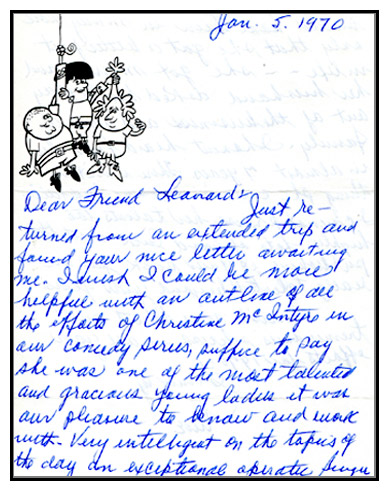 Jan. 5. 1970
Dear Friend Leonard:
Just re-
turned from an extended trip and
found your nice letter awaiting
me. I wish I could be more
helpful with an outline of all
the efforts of Christine McIntyre in
our comedy series, suffice to say
she was one of the most talented
and gracious young ladies it was
our pleasure to know and work
with. Very intelligent on the topics of
the day an exceptional operatic singer